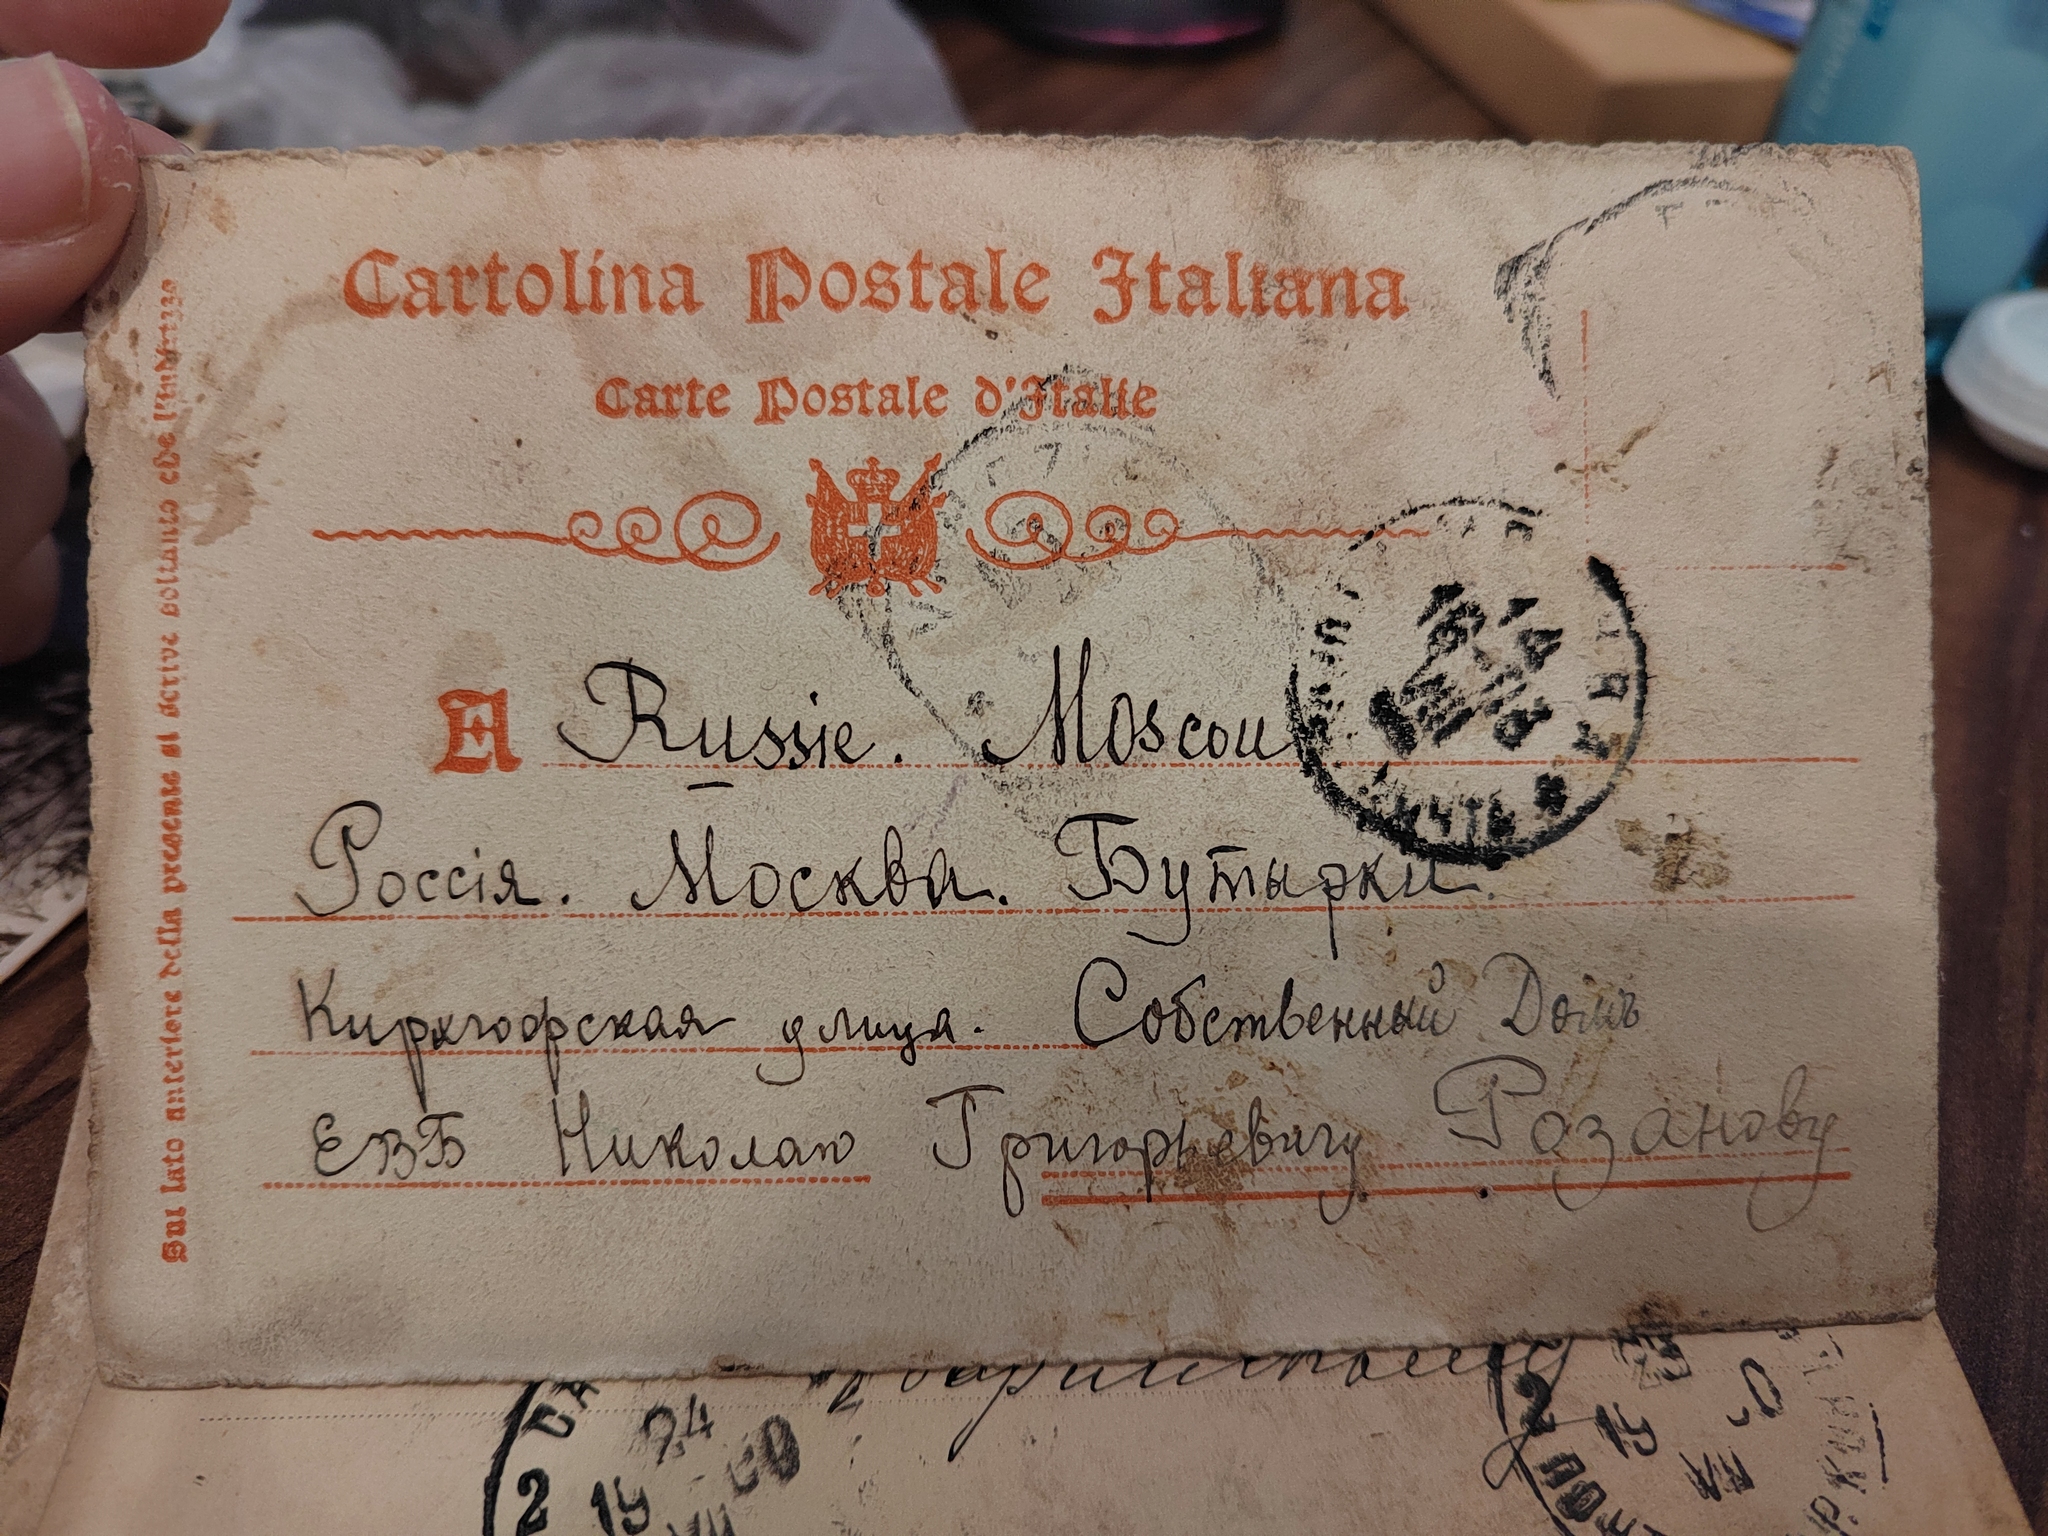 Cartolina Postale Italiana
Carte Postale d'Italie
A Russie. Moscou
Россія. Москва. Бутырки.
Кирхгофская улица. Собственный Домъ
ЕВБ Николаю Григорьевичу Розанову
Sul lato anteriore della presente si scrive soltanto che l'indirizzo
2
24
19
00
2
19
VII